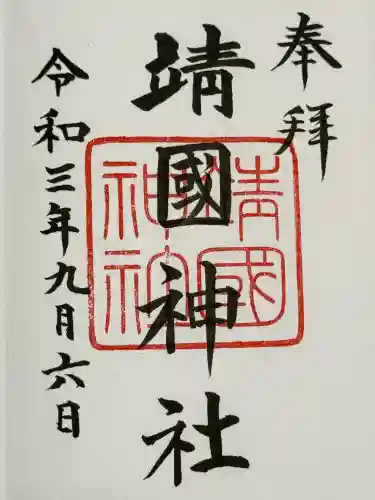 奉拝
靖國神社
靖國
神社
令和三年九月六日